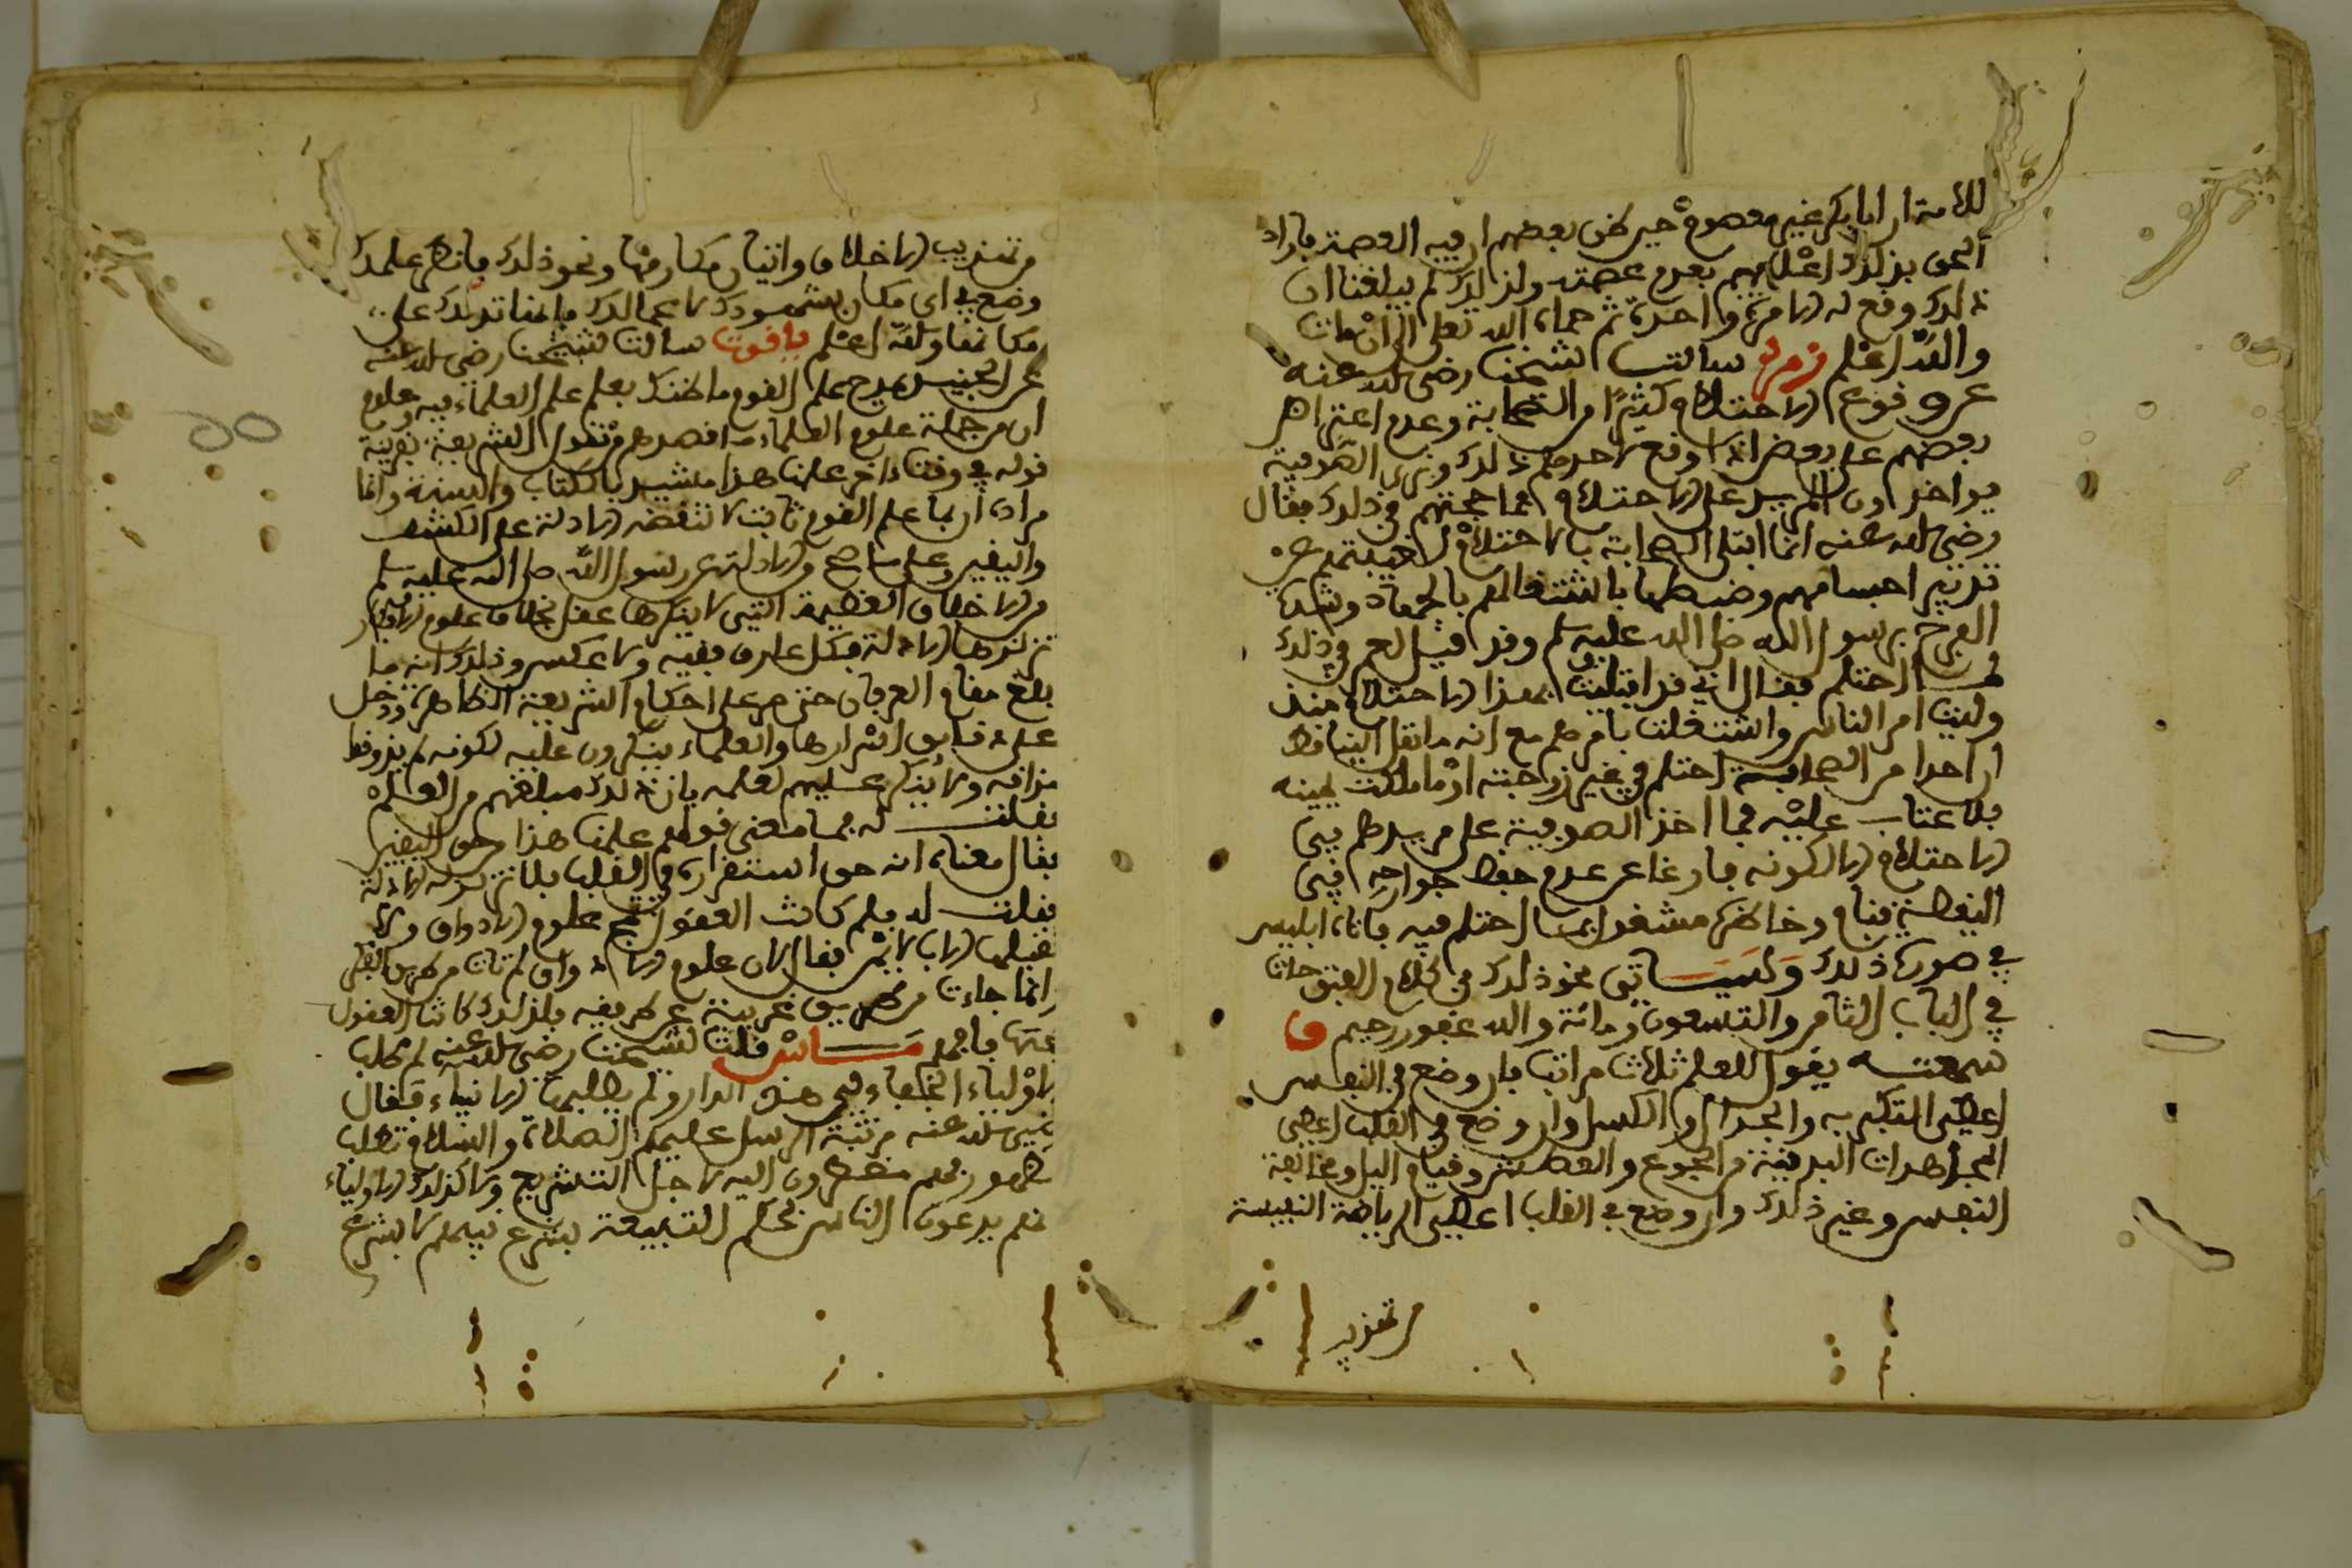 للأمة ان ابا بكر غير معصوم حين ظن بعضهم ان فيه العصمة فاراد
الحق بذلك اعلامهم بعدم عصمته ولذلك لم يبلغنا ان
ذلك وقع له الا مرة واحدة ثم حماه الله تعلى الى ان مات
والله اعلم زمرد سالت شيخنا رضي الله عنه
عن وقوع الاحتلام كثيرا من الصحابة وعدم اعتراض
بعضهم على بعض اذا وقع لاحدهم ذلك ونرى الصوفية
يواخذون المريد على الاحتلام فما حجتهم في ذلك فقال
رضي الله عنه انما ابتلى الصحابة بالاحتلام لغيبتهم عن
تدبير اجسامهم وضبطها باشتغالهم بالجهاد وشدة
الفرح برسول الله صلى الله عليه وسلم وقد قيل لعمر في ذلك
لما احتلم فقال اني قد ابتليت بهذا الاحتلام منذ
وليت امر الناس واشتغلت بامرهم مع انه ما نقل الينا قط
ان احدا من الصحابة احتلم في غير زوجته او ما ملكت يمينه
فلا عتاب عليه فما اخذ الصوفية على مريدهم في
الاحتلام الا لكونه فارغا عن عدم حفظ جوارحه في
اليقظة فنام وخاطره مشغول بما احتلم فيه فاتاه ابليس
في صورة ذلك وسياتي نحو ذلك في كلام الفتوحات
في الباب الثامن والتسعون ومائة والله غفور رحيم ف
سمعته يقول للعلم ثلاث مراتب فان وضع في النفس
اعطى التكبر به والجدال والكسل وان وضع في القلب اعطى
المجاهدات البدنية من الجوع والعطش وقيام الليل ومخالفة
النفس وغير ذلك وان وضع في القلب اعطى الرياضة النفيسة
من تهذيب
من تهذيب الاخلاق واتيان مكارمها ونحو ذلك فانظر علمك
وضع في اي مكان يشهد ذلك اعمالك فانها تدلك على
مكانها والله اعلم ياقوت سالت شيخنا رضي الله عنه
عن الجنيد يمدح علم القوم ما ظنك بعلم علم العلماء فيه
ان من جملة علوم العلماء ما قصدهم من نقول الشريعة بقرينة
قوله في وقت اخر علمنا هذا مشيد بالكتاب والسنة وانما
مراده ان علم القوم ثابت لا تنقضه الادلة على الكشف
واليقين وعلى ما صح من الادلة عن رسول الله صلى الله عليه وسلم
من الاخلاق العظيمة التي لا ينكرها عقل بخلاف علوم الافكار
تزلزلها الادلة فكل عارف فقيه ولا عكس وذلك انه ما
بلغ مقام العرفان حتى مر على احكام الشريعة الظاهرة ودخل
على دقايق اسرارها والعلماء ينكرون عليه لكونه لم يذوقوا
مذاقه ولا ينكر عليهم لعلمه بان ذلك مبلغهم من العلم
فقلت له فما معنى قولهم علمنا هذا من حق اليقين
فقال معناه انه حق استقراره في القلب بلا تزلزله الادلة
فقلت له فلم كانت العقول تمج علوم الاذواق ولا
تقبلها الا بالايمان فقال لان علوم الاذواق لم تات من طريق الفكر
انما جاءت من طريق غريبة عن طريقه فلذلك كانت العقول
عنها فافهم ماس قلت لشيخنا رضي الله عنه لم طلب
الاولياء الخفاء في هذه الدار ولم يطلبها الانبياء فقال
رضي الله عنه مرتبة الرسل عليهم الصلاة والسلام تطلب
ظهورهم مضطرون اليه لاجل التشريع ولا كذلك الاولياء
فهم يدعون الناس بحكم التبعية بشرع نبيهم لا بشرع